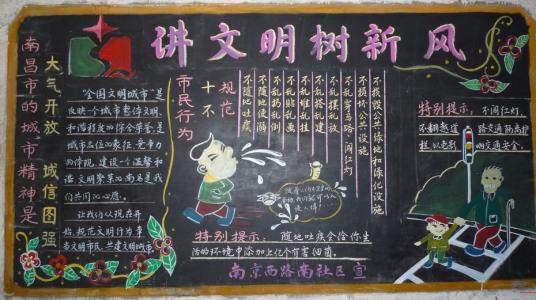 讲文明树新风
南昌市的城市精神是
大气开放 诚信图强
"全国文明城市"是
反映一个城市整体文明
和谐程度的综合荣誉,是
城市品位的象征,竞争力
的体现,建设一个温馨和
谐文明繁荣的南昌是我
们共同的心愿。
让我们从现在开
始,规范文明行为,争
当文明市民,共建文明城市。
市民行为
十不
规范
不随地吐痰
不随地便溺
不乱扔乱倒
不乱贴乱画
不乱堆乱挂
不乱搭乱建
不乱摆乱放
不乱穿马路、闯红灯
不损坏公共设施
不损毁公共绿地和绿化设施
特别提示:不闯红灯,
不翻越道路交通防护
栏,以免影响交通安全。
特别提示:随地吐痰会给你生
活的环境中添加上亿个有害细菌。
南京西路南社区宣